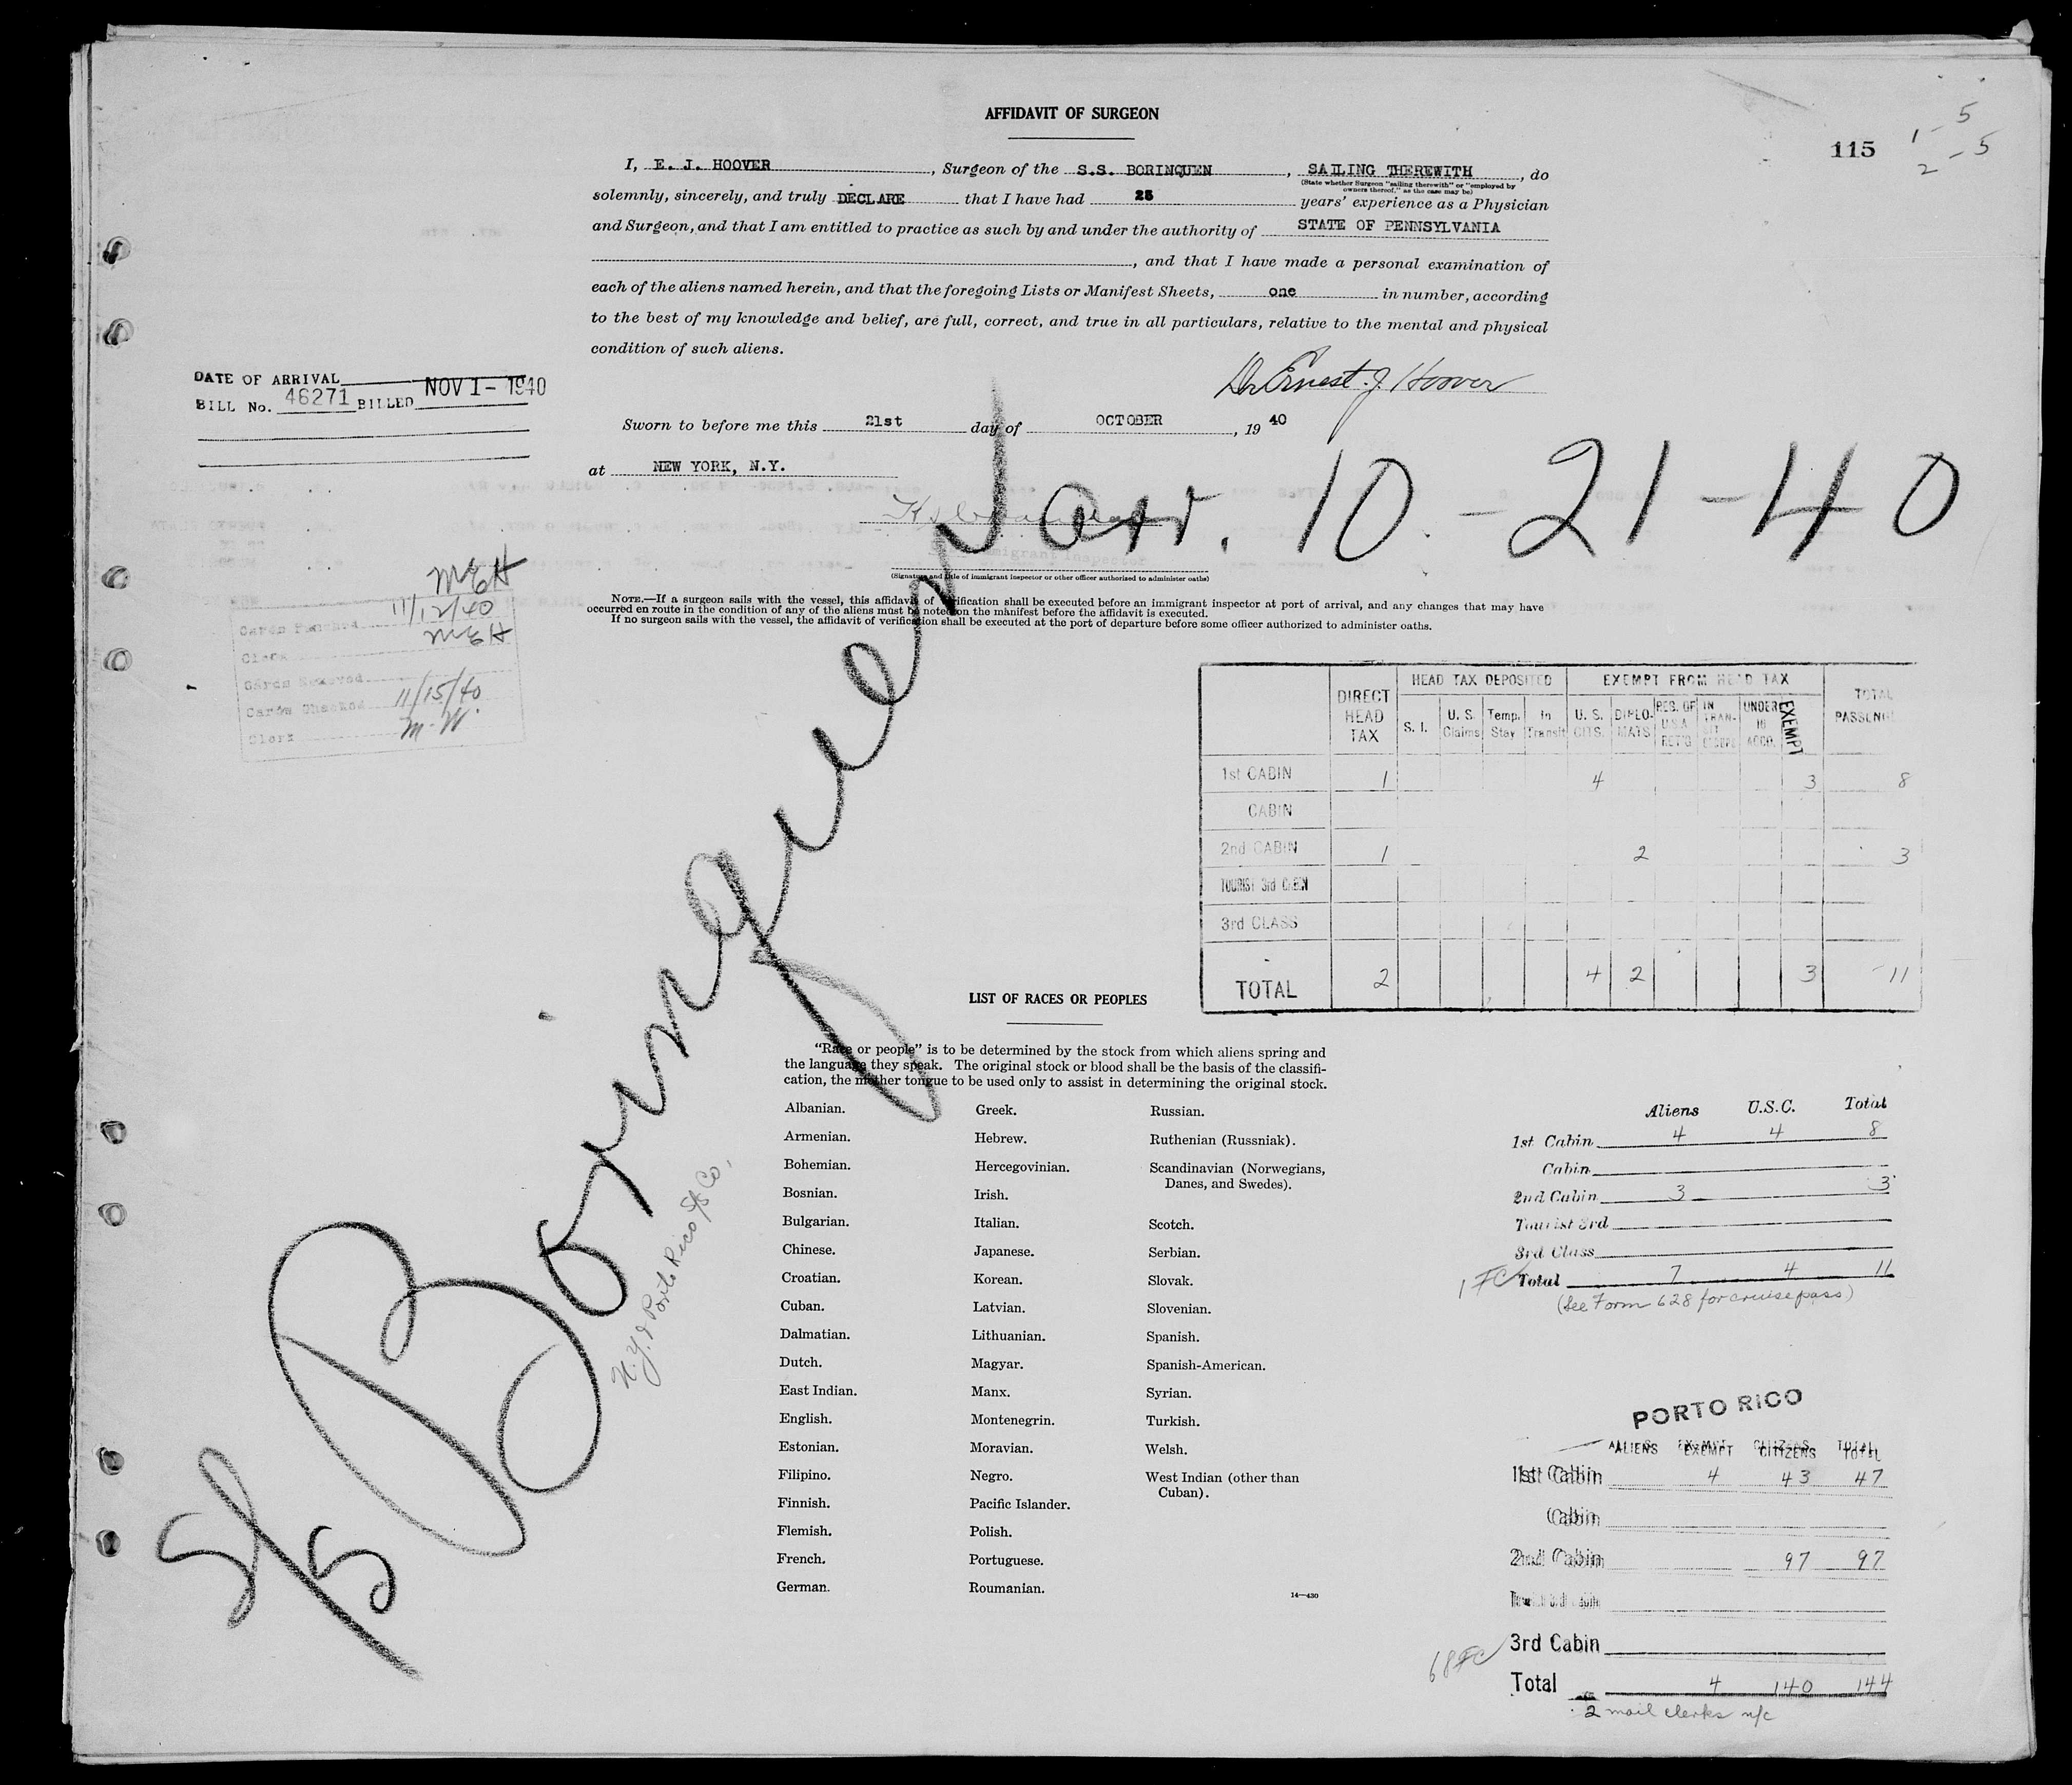 AFFIDAVIT OF SURGEON
115
1 - 5
2 - 5
I, E. J. HOOVER, Surgeon of the S.S. BORINQUEN, SAILING THEREWITH, do
(State whether Surgeon "sailing therewith" or "employed by
owners thereof," as the case may be)
solemnly, sincerely, and truly DECLARE that I have had 25 years' experience as a Physician
and Surgeon, and that I am entitled to practice as such by and under the authority of STATE OF PENNSYLVANIA
, and that I have made a personal examination of
each of the aliens named herein, and that the foregoing Lists or Manifest Sheets, one in number, according
to the best of my knowledge and belief, are full, correct, and true in all particulars, relative to the mental and physical
condition of such aliens.
Dr Ernest J. Hoover
DATE OF ARRIVAL
BILL No. 46271 BILLED NOV 1 - 1940
Sworn to before me this 21st day of OCTOBER, 19 40
at NEW YORK, N.Y.
arr. 10-21-40
Immigrant Inspector
(Signature and title of immigrant inspector or other officer authorized to administer oaths)
NOTE.—If a surgeon sails with the vessel, this affidavit of verification shall be executed before an immigrant inspector at port of arrival, and any changes that may have
occurred en route in the condition of any of the aliens must be noted on the manifest before the affidavit is executed.
If no surgeon sails with the vessel, the affidavit of verification shall be executed at the port of departure before some officer authorized to administer oaths.
MEH
Cards Punched 11/12/40
Clerk MEH
Cards Removed
Cards Checked 11/15/40
Clerk M.W.
S/S Borinquen
N.Y. & Porto Rico S/S Co.
DIRECT HEAD TAX
HEAD TAX DEPOSITED
EXEMPT FROM HEAD TAX
TOTAL PASSENG
S. I.
U. S. Claims
Temp. Stay
In Transit
U. S. CITS.
DIPLO- MATS
RES. OF U.S.A. RET'G
IN TRAN- SIT
UNDER 16 ACCO.
EXEMPT
1st CABIN 1 4 3 8
CABIN
2nd CABIN 1 2 3
TOURIST 3rd CABIN
3rd CLASS
TOTAL 2 4 2 3 11
LIST OF RACES OR PEOPLES
"Race or people" is to be determined by the stock from which aliens spring and
the language they speak. The original stock or blood shall be the basis of the classifi-
cation, the mother tongue to be used only to assist in determining the original stock.
Albanian.
Armenian.
Bohemian.
Bosnian.
Bulgarian.
Chinese.
Croatian.
Cuban.
Dalmatian.
Dutch.
East Indian.
English.
Estonian.
Filipino.
Finnish.
Flemish.
French.
German.
Greek.
Hebrew.
Hercegovinian.
Irish.
Italian.
Japanese.
Korean.
Latvian.
Lithuanian.
Magyar.
Manx.
Montenegrin.
Moravian.
Negro.
Pacific Islander.
Polish.
Portuguese.
Roumanian.
Russian.
Ruthenian (Russniak).
Scandinavian (Norwegians,
Danes, and Swedes).
Scotch.
Serbian.
Slovak.
Slovenian.
Spanish.
Spanish-American.
Syrian.
Turkish.
Welsh.
West Indian (other than
Cuban).
14—430
Aliens U.S.C. Total
1st Cabin 4 4 8
Cabin
2nd Cabin 3 3
Tourist 3rd
3rd Class
1 FC Total 7 4 11
(See Form 628 for cruise pass)
PORTO RICO
ALIENS EXEMPT CITIZENS TOTAL
1st Cabin 4 43 47
Cabin
2nd Cabin 97 97
3rd Cabin
68 FC
Total 4 140 144
2 mail clerks n/c